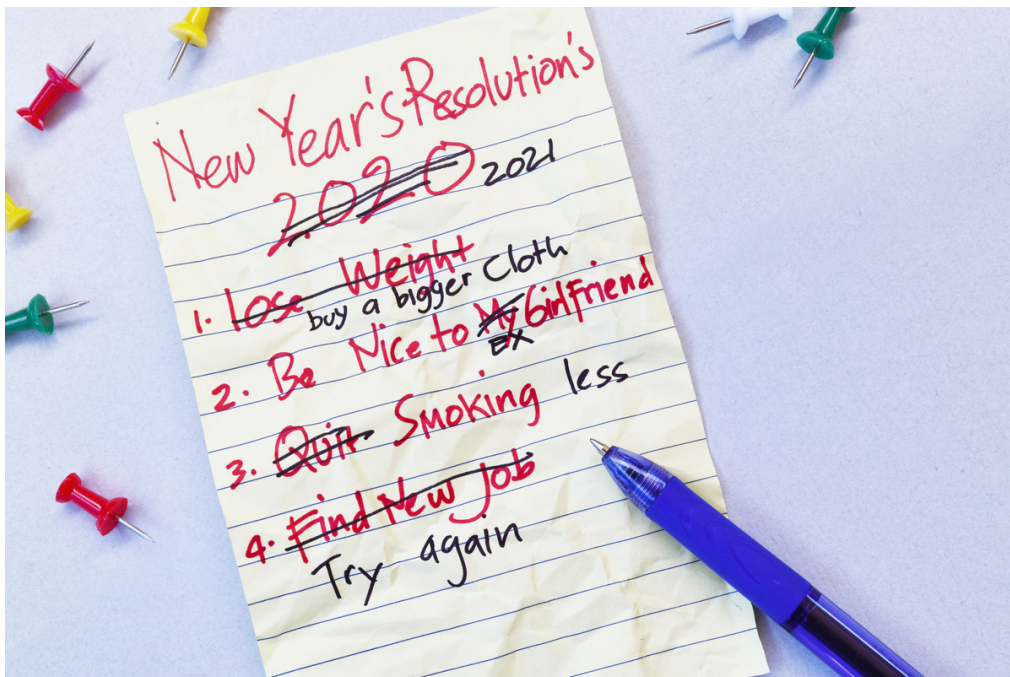 New Year's Resolution's
2020 2021
1. Lose Weight
buy a bigger Cloth
2. Be Nice to My Girlfriend
EX
3. Quit Smoking less
4. Find New Job
Try again